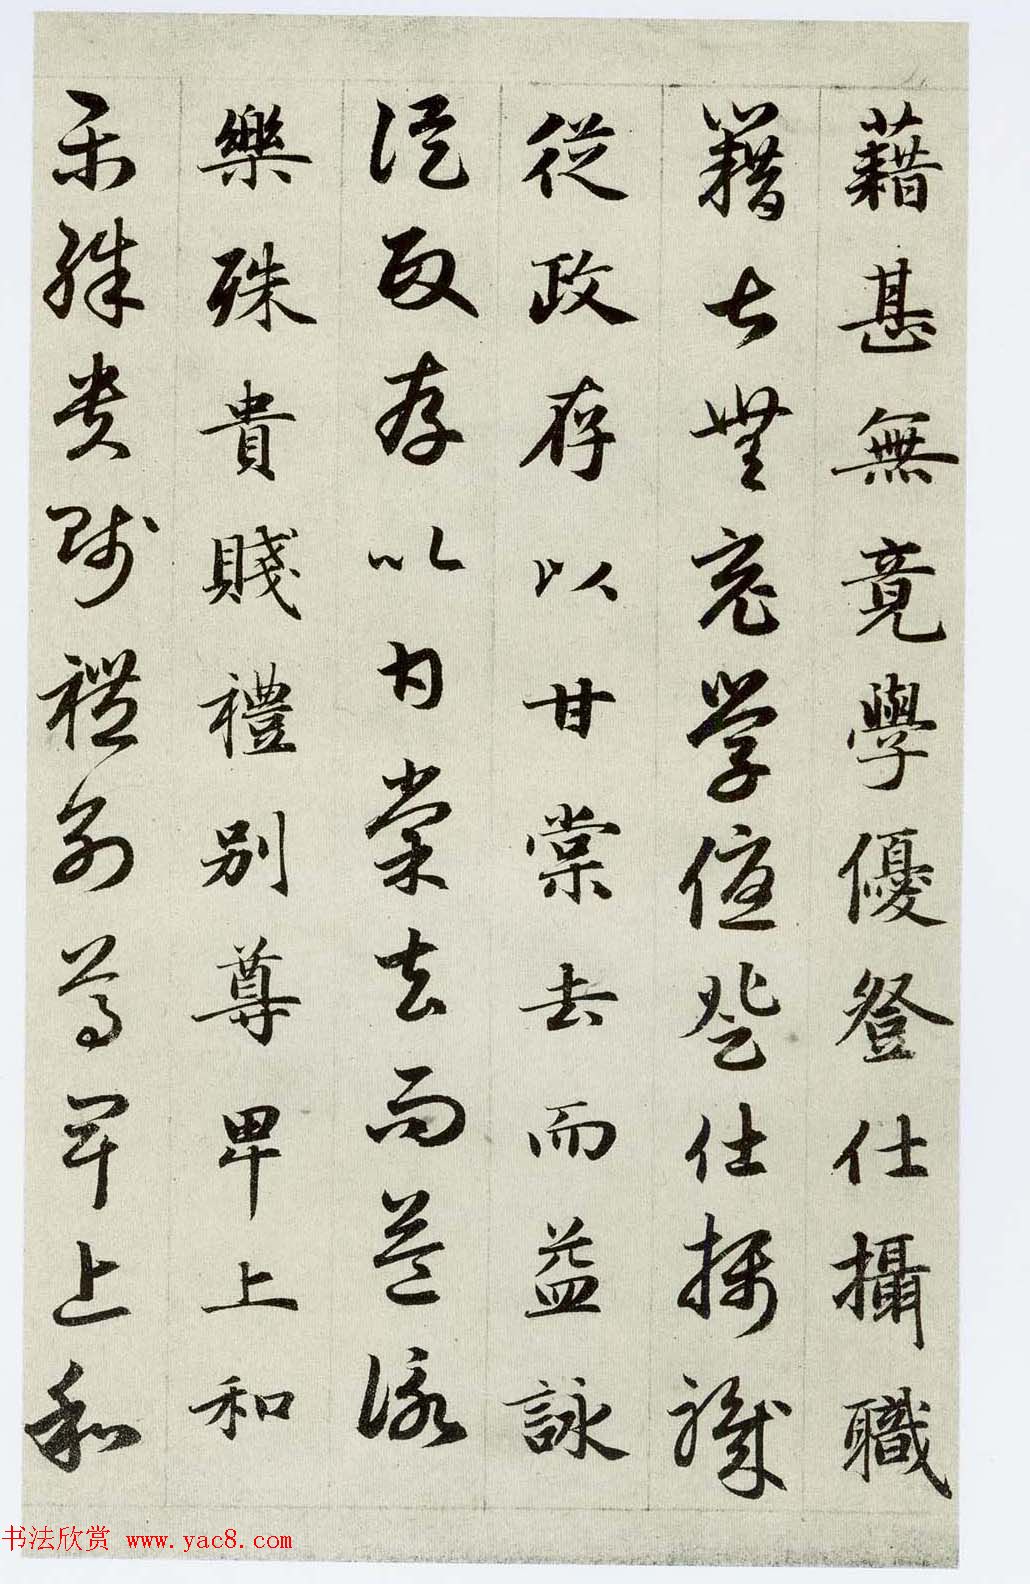 藉甚無竟學優登仕攝職
籍甚無竟學優登仕攝職
從政存以甘棠去而益詠
從政存以甘棠去而益詠
樂殊貴賤禮別尊卑上和
樂殊貴賤禮別尊卑上和
书法欣赏 www.yac8.com